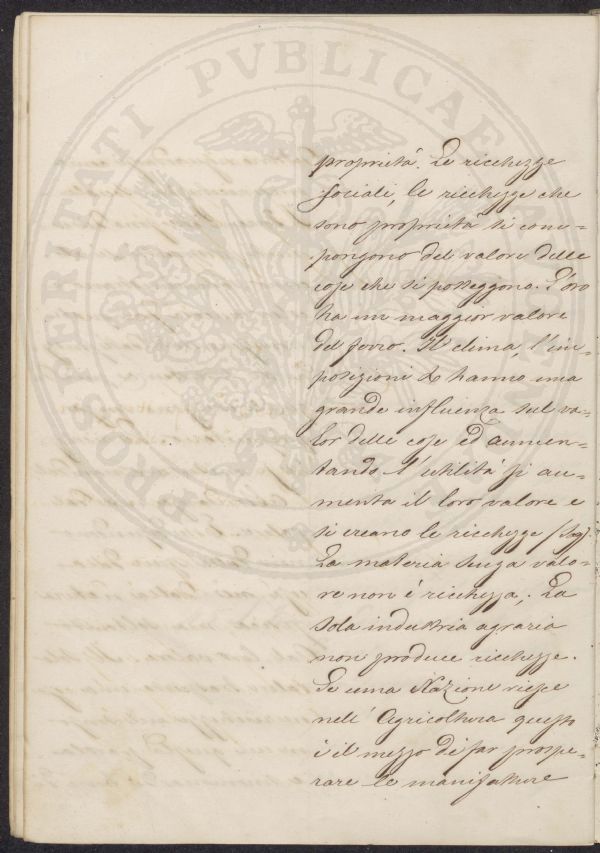 PROSPERITATI PVBLICAE
proprietà. Le ricchezze
sociali, le ricchezze che
sono proprietà si com=
pongono del valore delle
cose che si posseggono. L'oro
ha un maggior valore
del ferro. Il clima, l'im=
posizioni & hanno una
grande influenza sul va=
lor delle cose ed aumen=
tando l'utilità si au=
menta il loro valore e
si creano le ricchezze
La materia senza valo=
re non è ricchezza; La
sola industria agraria
non produce ricchezze.
Se una Nazione riesce
nell'Agricoltura questo
è il mezzo di far prospe=
rare le manifatture